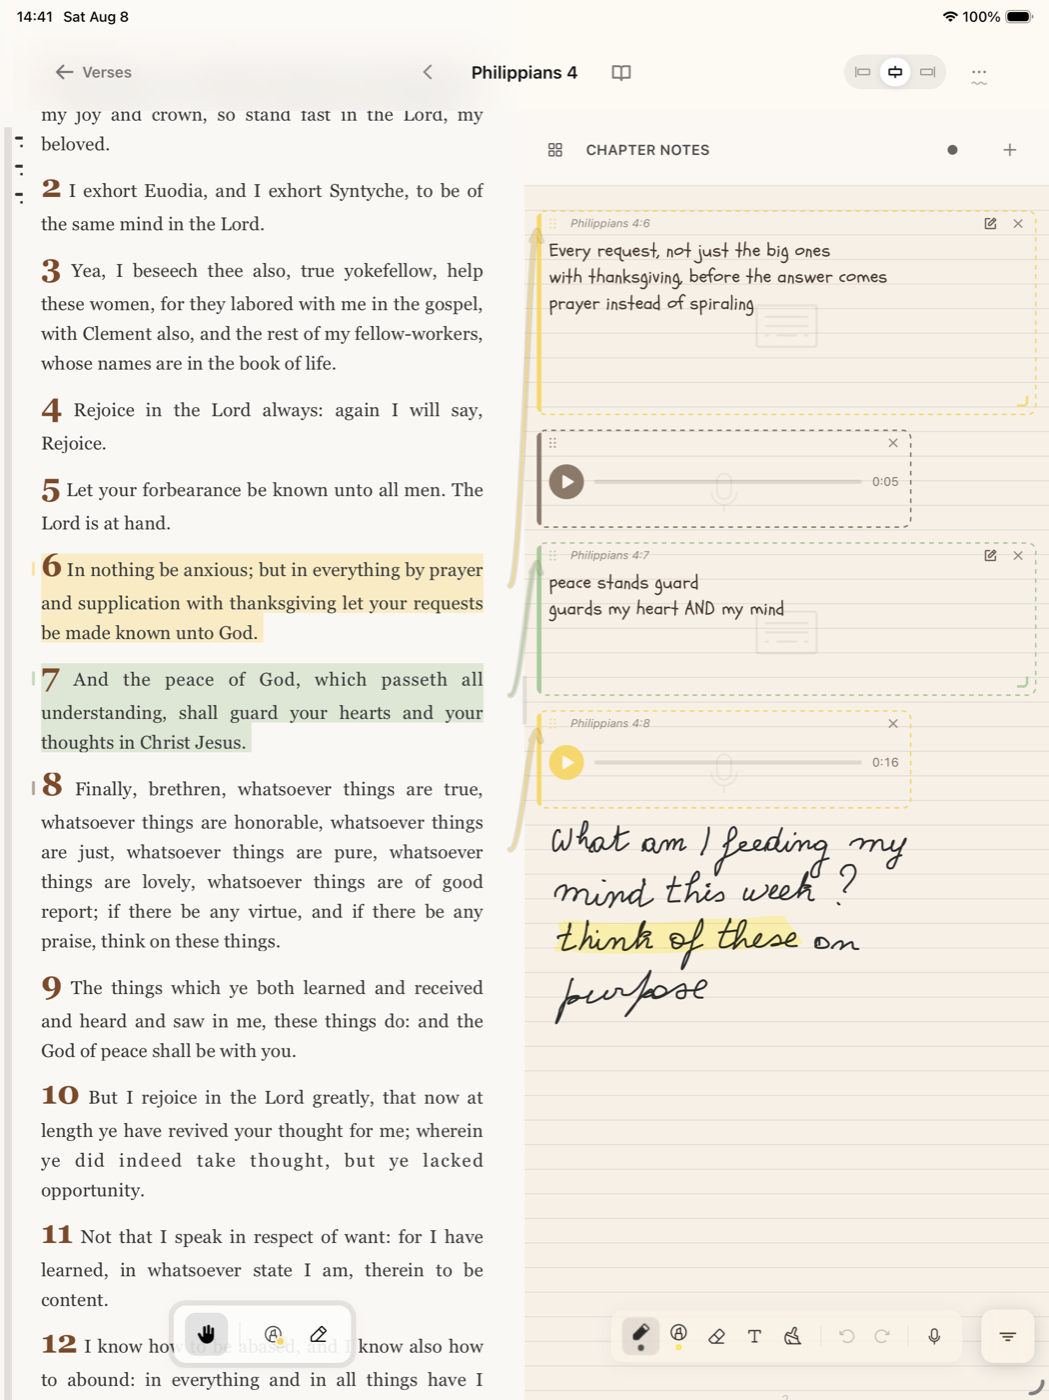 14:41 Sat Aug 8
100%
Verses
Philippians 4
my joy and crown, so stand fast in the Lord, my
beloved.
2 I exhort Euodia, and I exhort Syntyche, to be of
the same mind in the Lord.
3 Yea, I beseech thee also, true yokefellow, help
these women, for they labored with me in the gospel,
with Clement also, and the rest of my fellow-workers,
whose names are in the book of life.
4 Rejoice in the Lord always: again I will say,
Rejoice.
5 Let your forbearance be known unto all men. The
Lord is at hand.
6 In nothing be anxious; but in everything by prayer
and supplication with thanksgiving let your requests
be made known unto God.
7 And the peace of God, which passeth all
understanding, shall guard your hearts and your
thoughts in Christ Jesus.
8 Finally, brethren, whatsoever things are true,
whatsoever things are honorable, whatsoever things
are just, whatsoever things are pure, whatsoever
things are lovely, whatsoever things are of good
report; if there be any virtue, and if there be any
praise, think on these things.
9 The things which ye both learned and received
and heard and saw in me, these things do: and the
God of peace shall be with you.
10 But I rejoice in the Lord greatly, that now at
length ye have revived your thought for me; wherein
ye did indeed take thought, but ye lacked
opportunity.
11 Not that I speak in respect of want: for I have
learned, in whatsoever state I am, therein to be
content.
12 I know how to be abased, and I know also how
to abound: in everything and in all things have I
CHAPTER NOTES
Philippians 4:6
Every request, not just the big ones
with thanksgiving, before the answer comes
prayer instead of spiraling
0:05
Philippians 4:7
peace stands guard
guards my heart AND my mind
Philippians 4:8
0:16
What am I feeding my
mind this week?
think of these on
purpose